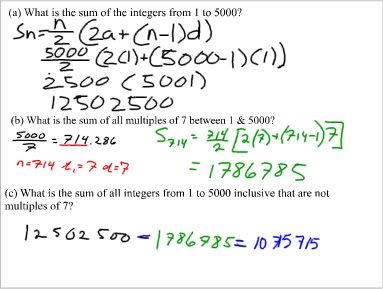 (a) What is the sum of the integers from 1 to 5000?
Sn = n/2 (2a + (n-1)d)
5000/2 (2(1) + (5000-1)(1))
2500 (5001)
12502500
(b) What is the sum of all multiples of 7 between 1 & 5000?
5000/7 = 714.286
n=714 t₁=7 d=7
S₇₁₄ = 714/2 [2(7)+(714-1)7]
= 1786785
(c) What is the sum of all integers from 1 to 5000 inclusive that are not
multiples of 7?
12502500 - 1786785 = 10715715